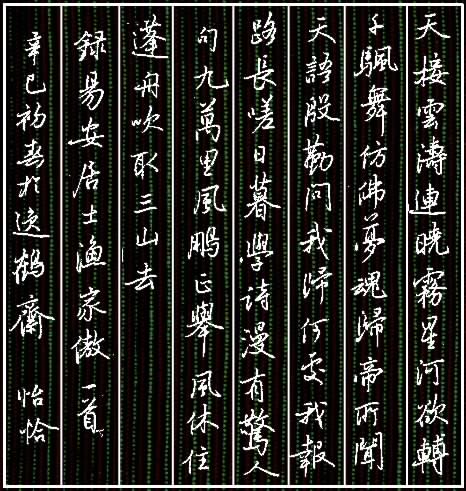 天接雲濤連曉霧星河欲轉
千颿舞仿佛夢魂歸帝所聞
天語殷勤問我歸何處我報
路長嗟日暮學詩漫有驚人
句九萬里風鵬正舉風休住
蓬舟吹取三山去
錄易安居士漁家傲一首
辛巳初春於逸鶴齋 怡恰